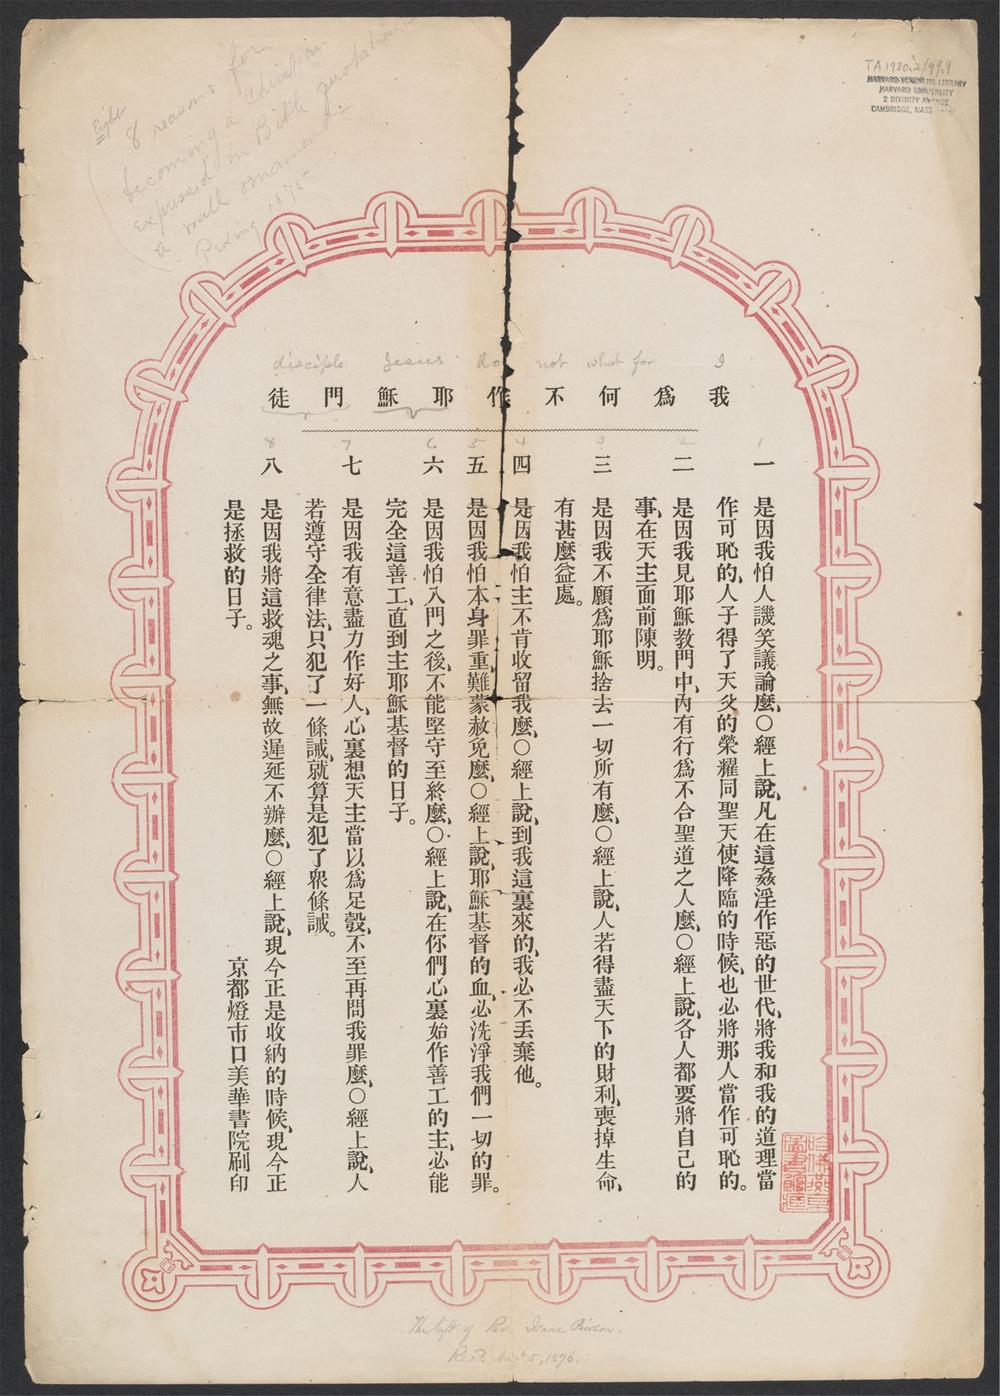 Eight
8 reasons for
becoming a Christian
expressed in Bible quotations
a wall ornament
Peking 1875
TA 1980.2/99.9
HARVARD-YENCHING LIBRARY
HARVARD UNIVERSITY
2 DIVINITY AVENUE
CAMBRIDGE, MASS
disciple Jesus not what for I
我爲何不作耶穌門徒
1 2 3 4 5 6 7 8
一 是因我怕人譏笑議論麼、○經上說、凡在這姦淫作惡的世代、將我和我的道理當
作可恥的、人子得了天父的榮耀同聖天使降臨的時候、也必將那人當作可恥的。
二 是因我見耶穌教門中、內有行爲不合聖道之人麼、○經上說、各人都要將自己的
事、在天主面前陳明。
三 是因我不願爲耶穌捨去一切所有麼、○經上說、人若得盡天下的財利、喪掉生命、
有甚麼益處。
四 是因我怕主不肯收留我麼、○經上說、到我這裏來的、我必不丟棄他。
五 是因我怕本身罪重、難蒙赦免麼、○經上說、耶穌基督的血、必洗淨我們一切的罪。
六 是因我怕入門之後、不能堅守至終麼、○經上說、在你們心裏始作善工的主、必能
完全這善工、直到主耶穌基督的日子。
七 是因我有意盡力作好人、心裏想天主當以爲足彀、不至再問我罪麼、○經上說、人
若遵守全律法、只犯了一條誡、就算是犯了衆條誡。
八 是因我將這救魂之事、無故遲延不辦麼、○經上說、現今正是收納的時候、現今正
是拯救的日子。
京都燈市口美華書院刷印
哈佛燕京
圖書館藏
The Gift of Rev. Isaac Pierson.
Rec'd 5, 1876.